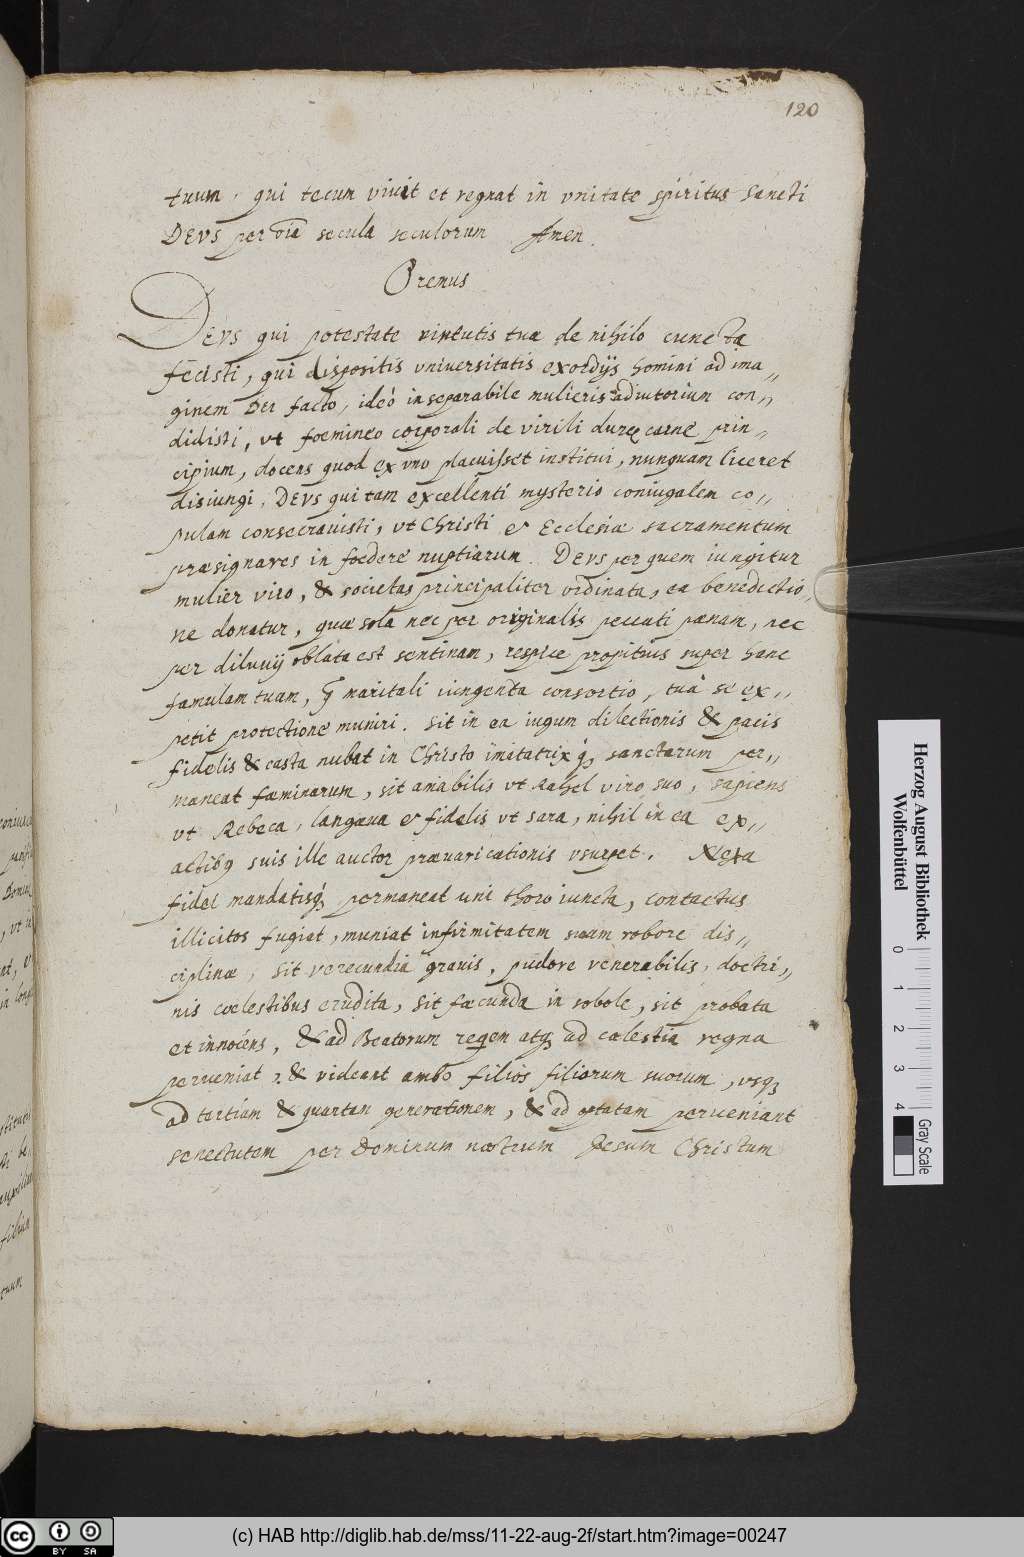 120
tuum, qui tecum viuit et regnat in vnitate spiritus sancti
DEVS per oīa secula seculorum Amen.
Oremus
DEVS qui potestate virtutis tuæ de nihilo cuncta
fecisti, qui dispositis vniuersitatis exordijs homini ad ima„
ginem Dei facto, ideò inseparabile mulieris adiutorium con„
didisti, vt foemineo corporali de virili dares carne prin„
cipium, docens quod ex vno placuisset institui, nunquam liceret
disiungi. DEVS qui tam excellenti mysterio coniugalem co„
pulam consecrauisti, vt Christi & Ecclesiæ sacramentum
præsignares in foedere nuptiarum. DEVS per quem iungitur
mulier viro, & societas principaliter ordinata, ea benedictio„
ne donatur, quæ sola nec per originalis peccati pænam, nec
per diluuij oblata est sentinam, respice propitius super hanc
famulam tuam, q̄ maritali iungenda consortio, tua se ex„
petit protectione muniri. Sit in ea iugum dilectionis & pacis
fidelis & casta nubat in Christo imitatrix q̨ sanctarum per„
maneat fæminarum, sit amabilis vt Rahel viro suo, sapiens
vt Rebeca, langæua & fidelis vt Sara, nihil in ea ex„
actibq suis ille auctor præuaricationis vsurpet. Nexa
fidei mandatisq̨ permaneat uni thoro iuncta, contactus
illicitos fugiat, muniat infirmitatem suam robore dis„
ciplinæ, sit verecundia grauis, pudore venerabilis, doctri„
nis cœlestibus erudita, sit fæcunda in sobole, sit probata
et innocens, & ad Beatorum regem atq̨ ad cælestia regna
perueniat, & videant ambo filios filiorum suorum, vsq̨
ad tertiam & quartam generationem, & ad optatam perueniant
senectutem per Dominum nostrum Jesum Christum
Herzog August Bibliothek
Wolfenbüttel
0
1
2
3
4
Gray Scale
cc
BY SA
(c) HAB http://diglib.hab.de/mss/11-22-aug-2f/start.htm?image=00247